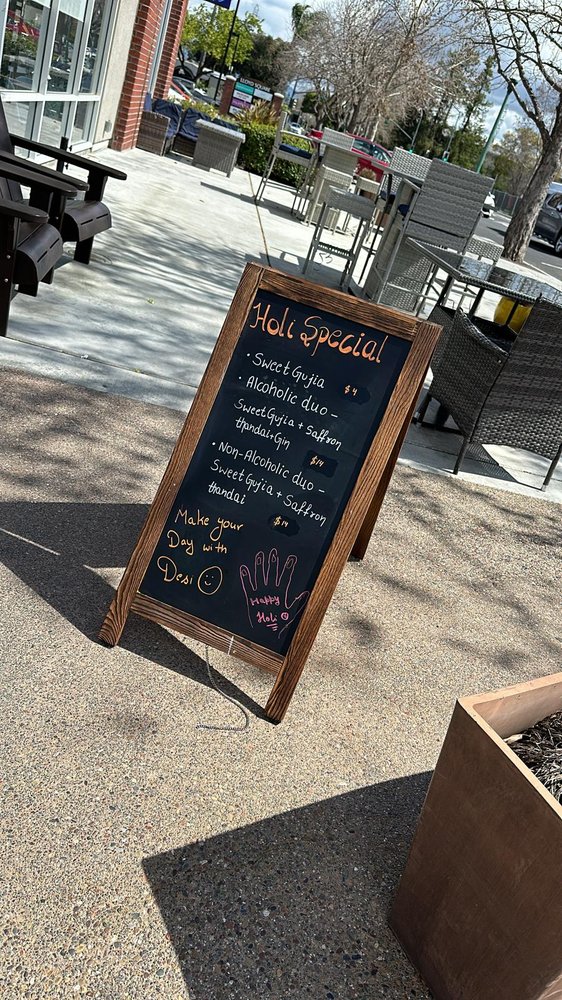 Holi Special
• Sweet Gujia $4
• Alcoholic duo -
Sweet Gujia + Saffron
thandai+Gin $14
• Non-Alcoholic duo -
Sweet Gujia + Saffron
thandai $14
Make your
Day with
Desi
Happy
Holi